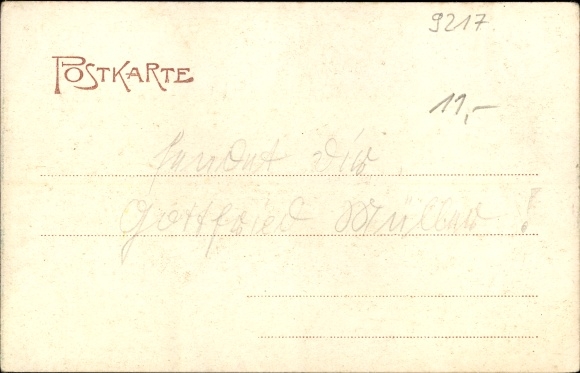 9217
POSTKARTE
11,-
sendet dir
Gottfried Müller!